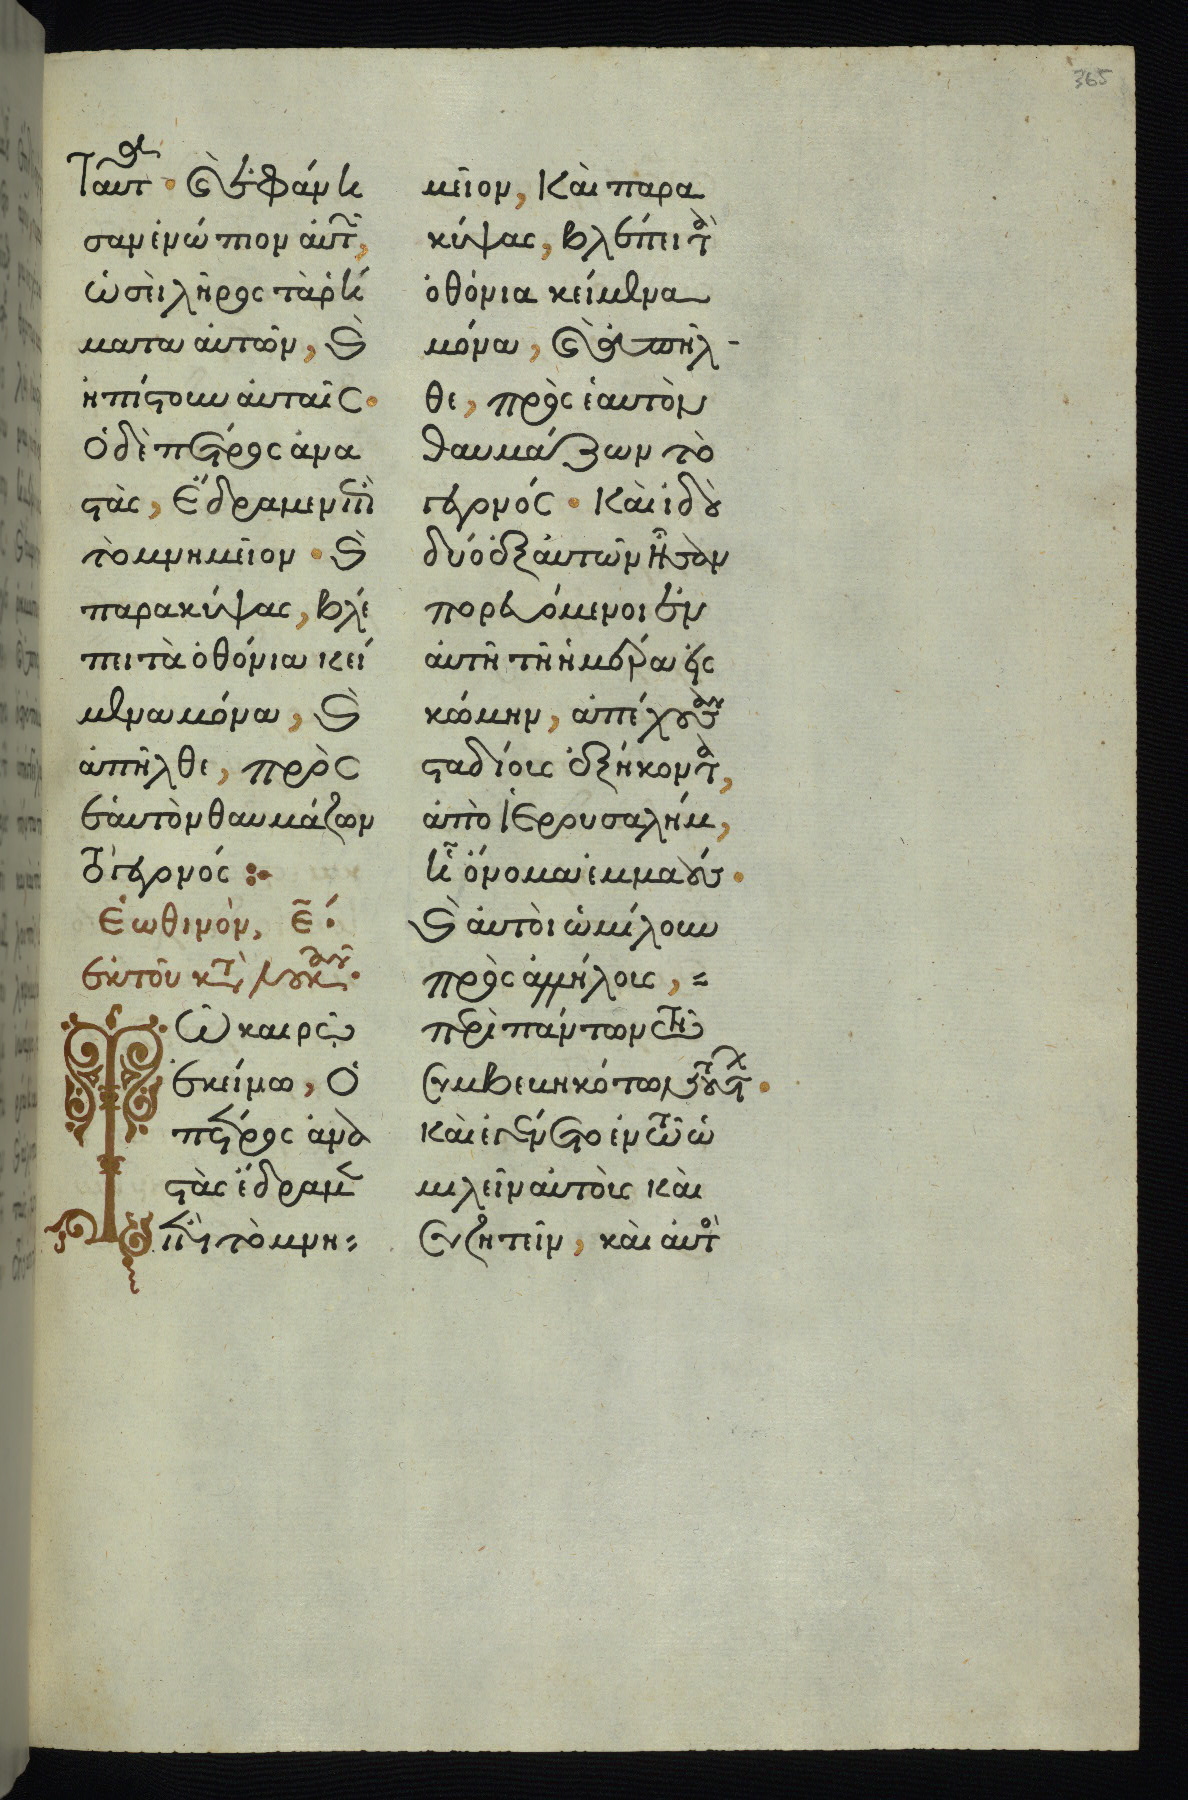 365
ταῦτα· καὶ ἐφάνη
σαν ἐνώπιον αὐτῶν,
ὡσεὶ λῆρος τὰ ῥή
ματα αὐτῶν, καὶ
ἠπίστουν αὐταῖς·
Ὁ δὲ πέτρος ἀνα
στὰς, ἔδραμεν ἐπὶ
τὸ μνημεῖον· καὶ
παρακύψας, βλέ
πει τὰ ὀθόνια κεί
μενα μόνα, καὶ
ἀπῆλθε, πρὸς
ἑαυτὸν θαυμάζων
τὸ γεγονός:
Ἑωθινὸν, ε̄·
ἐκ τοῦ κατὰ λουκᾶν·
Τῶ καιρῶ
ἐκείνω, Ὁ
πέτρος ἀνα
στὰς ἔδραμεν
ἐπὶ τὸ μνη=
μεῖον, Καὶ παρα
κύψας, βλέπει τὰ
ὀθόνια κείμενα
μόνα, καὶ ἀπῆλ-
θε, πρὸς ἑαυτὸν
θαυμάζων τὸ
γεγονός· Καὶ ἰδοὺ
δύο ἐξ αὐτῶν ἦσαν
πορευόμενοι ἐν
αὐτῆ τῆ ἡμέρα εἰς
κώμην, ἀπέχουσαν
σταδίους ἑξήκοντα,
ἀπὸ Ἱερουσαλήμ,
ἧ ὄνομα ἐμμαούς·
καὶ αὐτοὶ ὡμίλουν
πρὸς ἀλλήλους,=
περὶ πάντων τῶν
συμβεβηκότων τούτων·
καὶ ἐγένετο ἐν τῶ ὁ
μιλεῖν αὐτοὺς καὶ
συζητεῖν, καὶ αὐτὸς